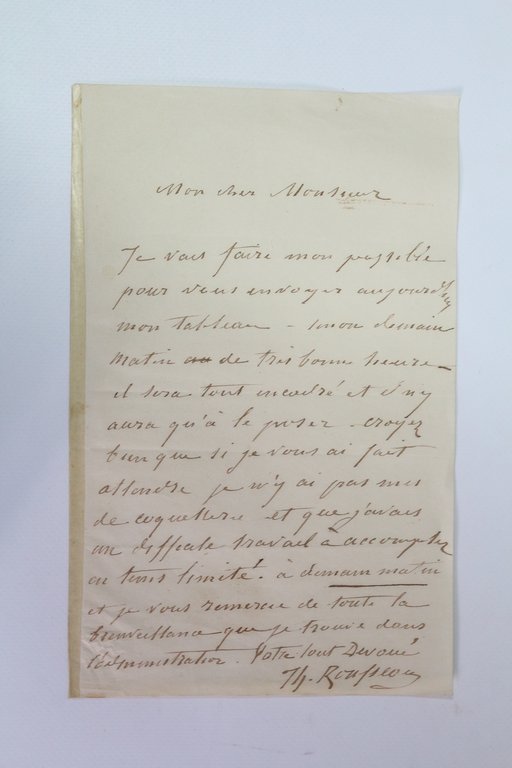 Mon cher Monsieur
Je vais faire mon possible
pour vous envoyer aujourd'hui
mon tableau – sinon demain
matin au de très bonne heure –
il sera tout encadré et il n'y
aura qu'à le poser – croyez
bien que si je vous ai fait
attendre je n'y ai pas mis
de coquetterie et que j'avais
un difficile travail à accomplir
en tems limité. à demain matin
et je vous remercie de toute la
bienveillance que je trouve dans
l'administration. Votre tout Dévoué
Th. Rousseau